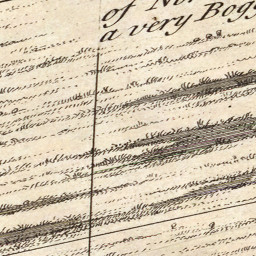 of No
a very Bogg